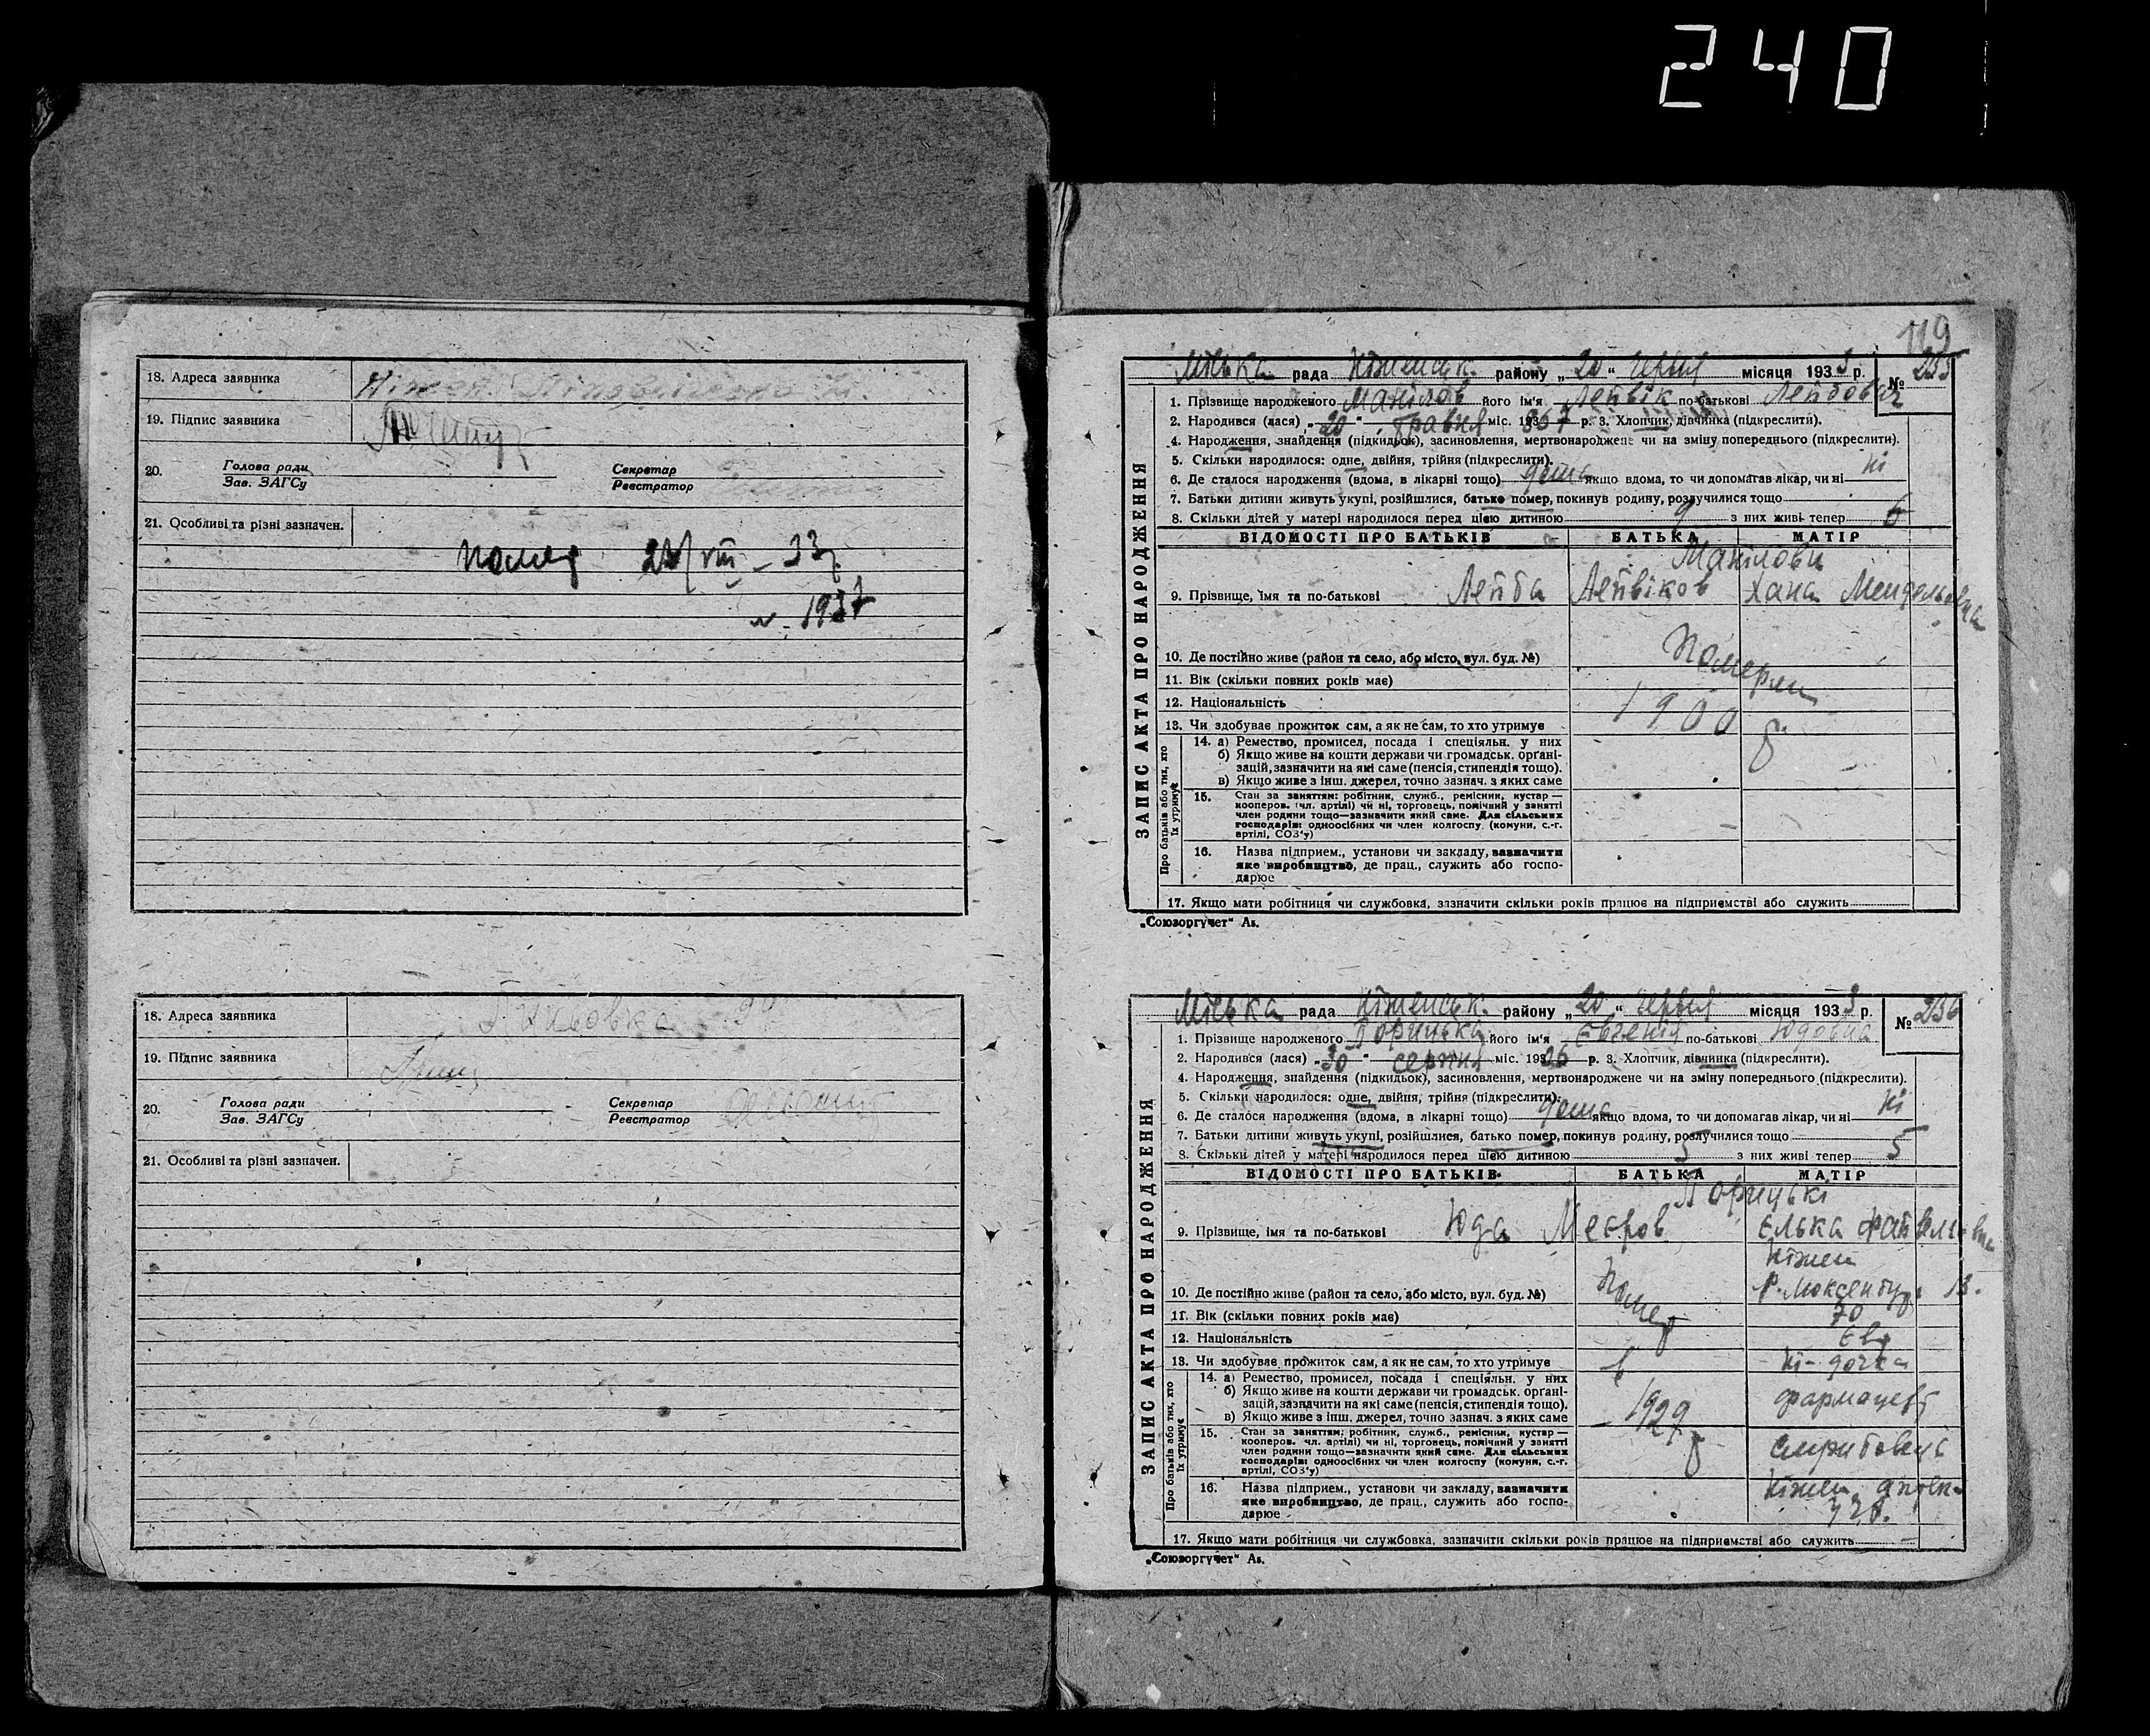 240
18. Адреса заявника
19. Підпис заявника
20. Голова ради Секретар
Зав. ЗАГСу Реєстратор
21. Особливі та різні зазначен.
помер
18. Адреса заявника
19. Підпис заявника
20. Голова ради Секретар
Зав. ЗАГСу Реєстратор
21. Особливі та різні зазначен.
119
ЗАПИС АКТА ПРО НАРОДЖЕННЯ
Міська рада Ніженськ. району „20“ червня місяця 1933 р. № 255
1. Прізвище народженого Манілов його ім'я Лейвік по-батькові Лейбович
2. Народився (лася) „20“ травня міс. р. 3. Хлопчик, дівчинка (підкреслити).
4. Народження, знайдення (підкидьок), засиновлення, мертвонароджене чи на зміну попереднього (підкреслити).
5. Скільки народилося: одне, двійня, трійня (підкреслити).
6. Де сталося народження (вдома, в лікарні тощо) дома якщо вдома, то чи допомагав лікар, чи ні ні
7. Батьки дитини живуть укупі, розійшлися, батько помер, покинув родину, розлучилися тощо
8. Скільки дітей у матері народилося перед цією дитиною 9 з них живі тепер 6
ВІДОМОСТІ ПРО БАТЬКІВ БАТЬКА МАТІР
Манілови
9. Прізвище, імя та по-батькові Лейба Лейвіков Хана Мендельовна
10. Де постійно живе (район та село, або місто, вул. буд. №) Померли
11. Вік (скільки повних років має)
12. Національність 1900
13. Чи здобуває прожиток сам, а як не сам, то хто утримує
Про батьків або тих, хто їх утримує
14. а) Ремество, промисел, посада і спеціяльн. у них
б) Якщо живе на кошти держави чи громадськ. органі-
зацій, зазначити на які саме (пенсія, стипендія тощо).
в) Якщо живе з інш. джерел, точно зазнач. з яких саме
15. Стан за заняттям: робітник, служб., ремісник, кустар—
кооперов. (чл. артілі) чи ні, торговець, помічний у занятті
член родини тощо—зазначити який саме. Для сільських
господарів: одноосібних чи член колгоспу (комуни, с.-г.
артілі, СОЗ'у)
16. Назва підприєм., установи чи закладу, зазначити
яке виробництво, де прац., служить або госпо-
дарює
17. Якщо мати робітниця чи службовка, зазначити скільки років працює на підприємстві або служить
„Союзоргучет“ А₅.
ЗАПИС АКТА ПРО НАРОДЖЕННЯ
Міська рада Ніженськ. району „20“ червня місяця 1933 р. № 256
1. Прізвище народженого його ім'я Євгенія по-батькові Юдовна
2. Народився (лася) „30“ серпня міс. р. 3. Хлопчик, дівчинка (підкреслити).
4. Народження, знайдення (підкидьок), засиновлення, мертвонароджене чи на зміну попереднього (підкреслити).
5. Скільки народилося: одне, двійня, трійня (підкреслити).
6. Де сталося народження (вдома, в лікарні тощо) дома якщо вдома, то чи допомагав лікар, чи ні ні
7. Батьки дитини живуть укупі, розійшлися, батько помер, покинув родину, розлучилися тощо
8. Скільки дітей у матері народилося перед цією дитиною 5 з них живі тепер 5
ВІДОМОСТІ ПРО БАТЬКІВ БАТЬКА МАТІР
9. Прізвище, імя та по-батькові Юда Меєров Єлька
Ніжен
10. Де постійно живе (район та село, або місто, вул. буд. №) Помер 13.
11. Вік (скільки повних років має) 70
12. Національність Євр
13. Чи здобуває прожиток сам, а як не сам, то хто утримує в ні - дочка
Про батьків або тих, хто їх утримує
14. а) Ремество, промисел, посада і спеціяльн. у них
б) Якщо живе на кошти держави чи громадськ. органі-
зацій, зазначити на які саме (пенсія, стипендія тощо).
в) Якщо живе з інш. джерел, точно зазнач. з яких саме
1929 фармацевт
15. Стан за заняттям: робітник, служб., ремісник, кустар—
кооперов. чл. артілі) чи ні, торговець, помічний у занятті
член родини тощо—зазначити який саме. Для сільських
господарів: одноосібних чи член колгоспу (комуни, с.-г.
артілі, СОЗ'у)
службовець
16. Назва підприєм., установи чи закладу, зазначити
яке виробництво, де прац., служить або госпо-
дарює
Ніжен
17. Якщо мати робітниця чи службовка, зазначити скільки років працює на підприємстві або служить
„Союзоргучет“ А₅.